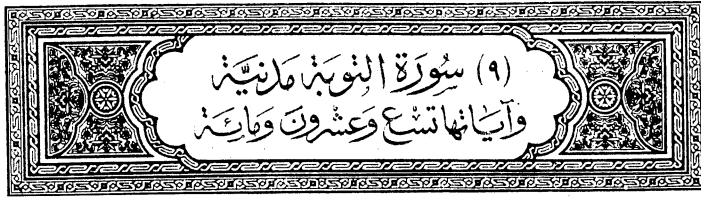 (٩) سُورَة التوبَة مَدنيَّة
وَآيَاتها تسْع وَعشرونَ وَمائِة